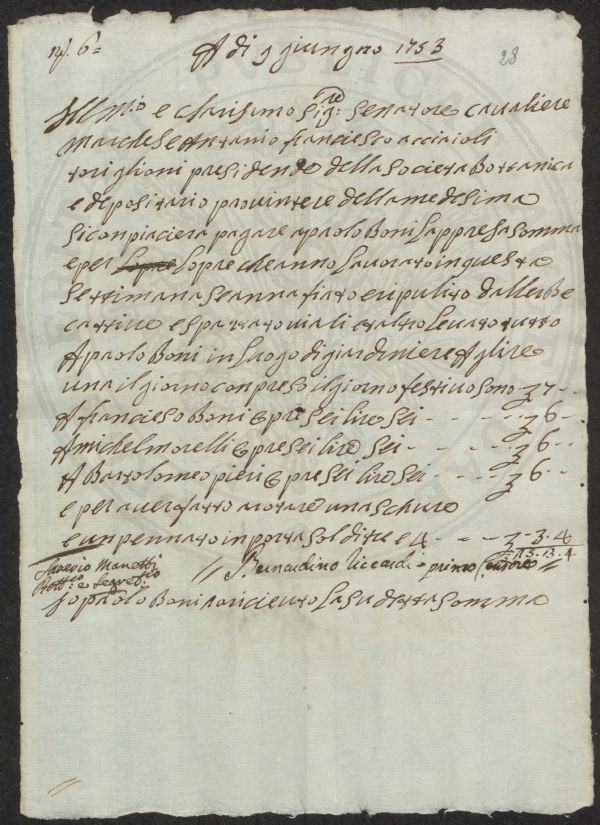 A di 9 giungno 1753
28
Ill mo e clarisimo Sig re Senatore cavaliere
Marchese Antonio franciesco acciaioli
toriglioni presidende della societa Bottanica
e depositario provintere della medesima
si conpiaciera pagare a paolo Boni la appresa somma
e per Lopre Lopre che anno Lavorato in questa
settimana se anna fiato e ripulito dallerbe
cattiue e spazzato viali e altro Leuato tutto
A paolo Boni in Luogo di giardiniere A Lire
una il giorno conpreso il giorno festiuo sono 7
A franciesco Boni opre sei lire sei 6
A michel morelli opre sei lire sei 6
A Bartolomeo pieri opre sei lire sei 6
e per auer fatto arotare una schure
e un pennato in porta soldi tre e 4 3.4
Saverio Manetti
Bott.co e Segret.rio
Bernardino Riccardi primo Censore
Io paolo Boni o riceuto La sudetta somma